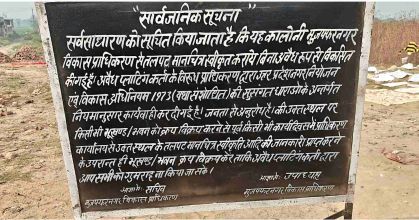 "सार्वजनिक सूचना"
सर्वसाधारण को सूचित किया जाता है कि यह कालोनी मुजफ्फरनगर
विकास प्राधिकरण से तलपट मानचित्र स्वीकृत कराये बिना अवैध रूप से विकसित
की गई है। अवैध प्लाटिंगकर्ता के विरुध प्राधिकरण द्वारा उत्तर प्रदेश नगर नियोजन
एवं विकास अधिनियम 1973 (यथा संशोधित) की सुसंगत धाराओं के अन्तर्गत
नियमानुसार कार्यवाही कर दी गई है। जनता से अनुरोध है। की उक्त स्थल पर
किसी भी भूखण्ड / भवन के क्रय विक्रय करने से पूर्व किसी भी कार्यदिवस में प्राधिकरण
कार्यालय से उक्त स्थल के तलपट मानचित्र स्वीकृति आदि की जानकारी प्राप्त करने
के उपरान्त ही भूखण्ड / भवन क्रय विक्रय करें ताकि अवैध प्लाटिंगकर्ता द्वारा
आप सभी को गुमराह ना किया जा सके।
आज्ञा से सचिव आज्ञा से उपाध्यक्ष
मुजफ्फरनगर विकास प्राधिकरण मुजफ्फरनगर विकास प्राधिकरण